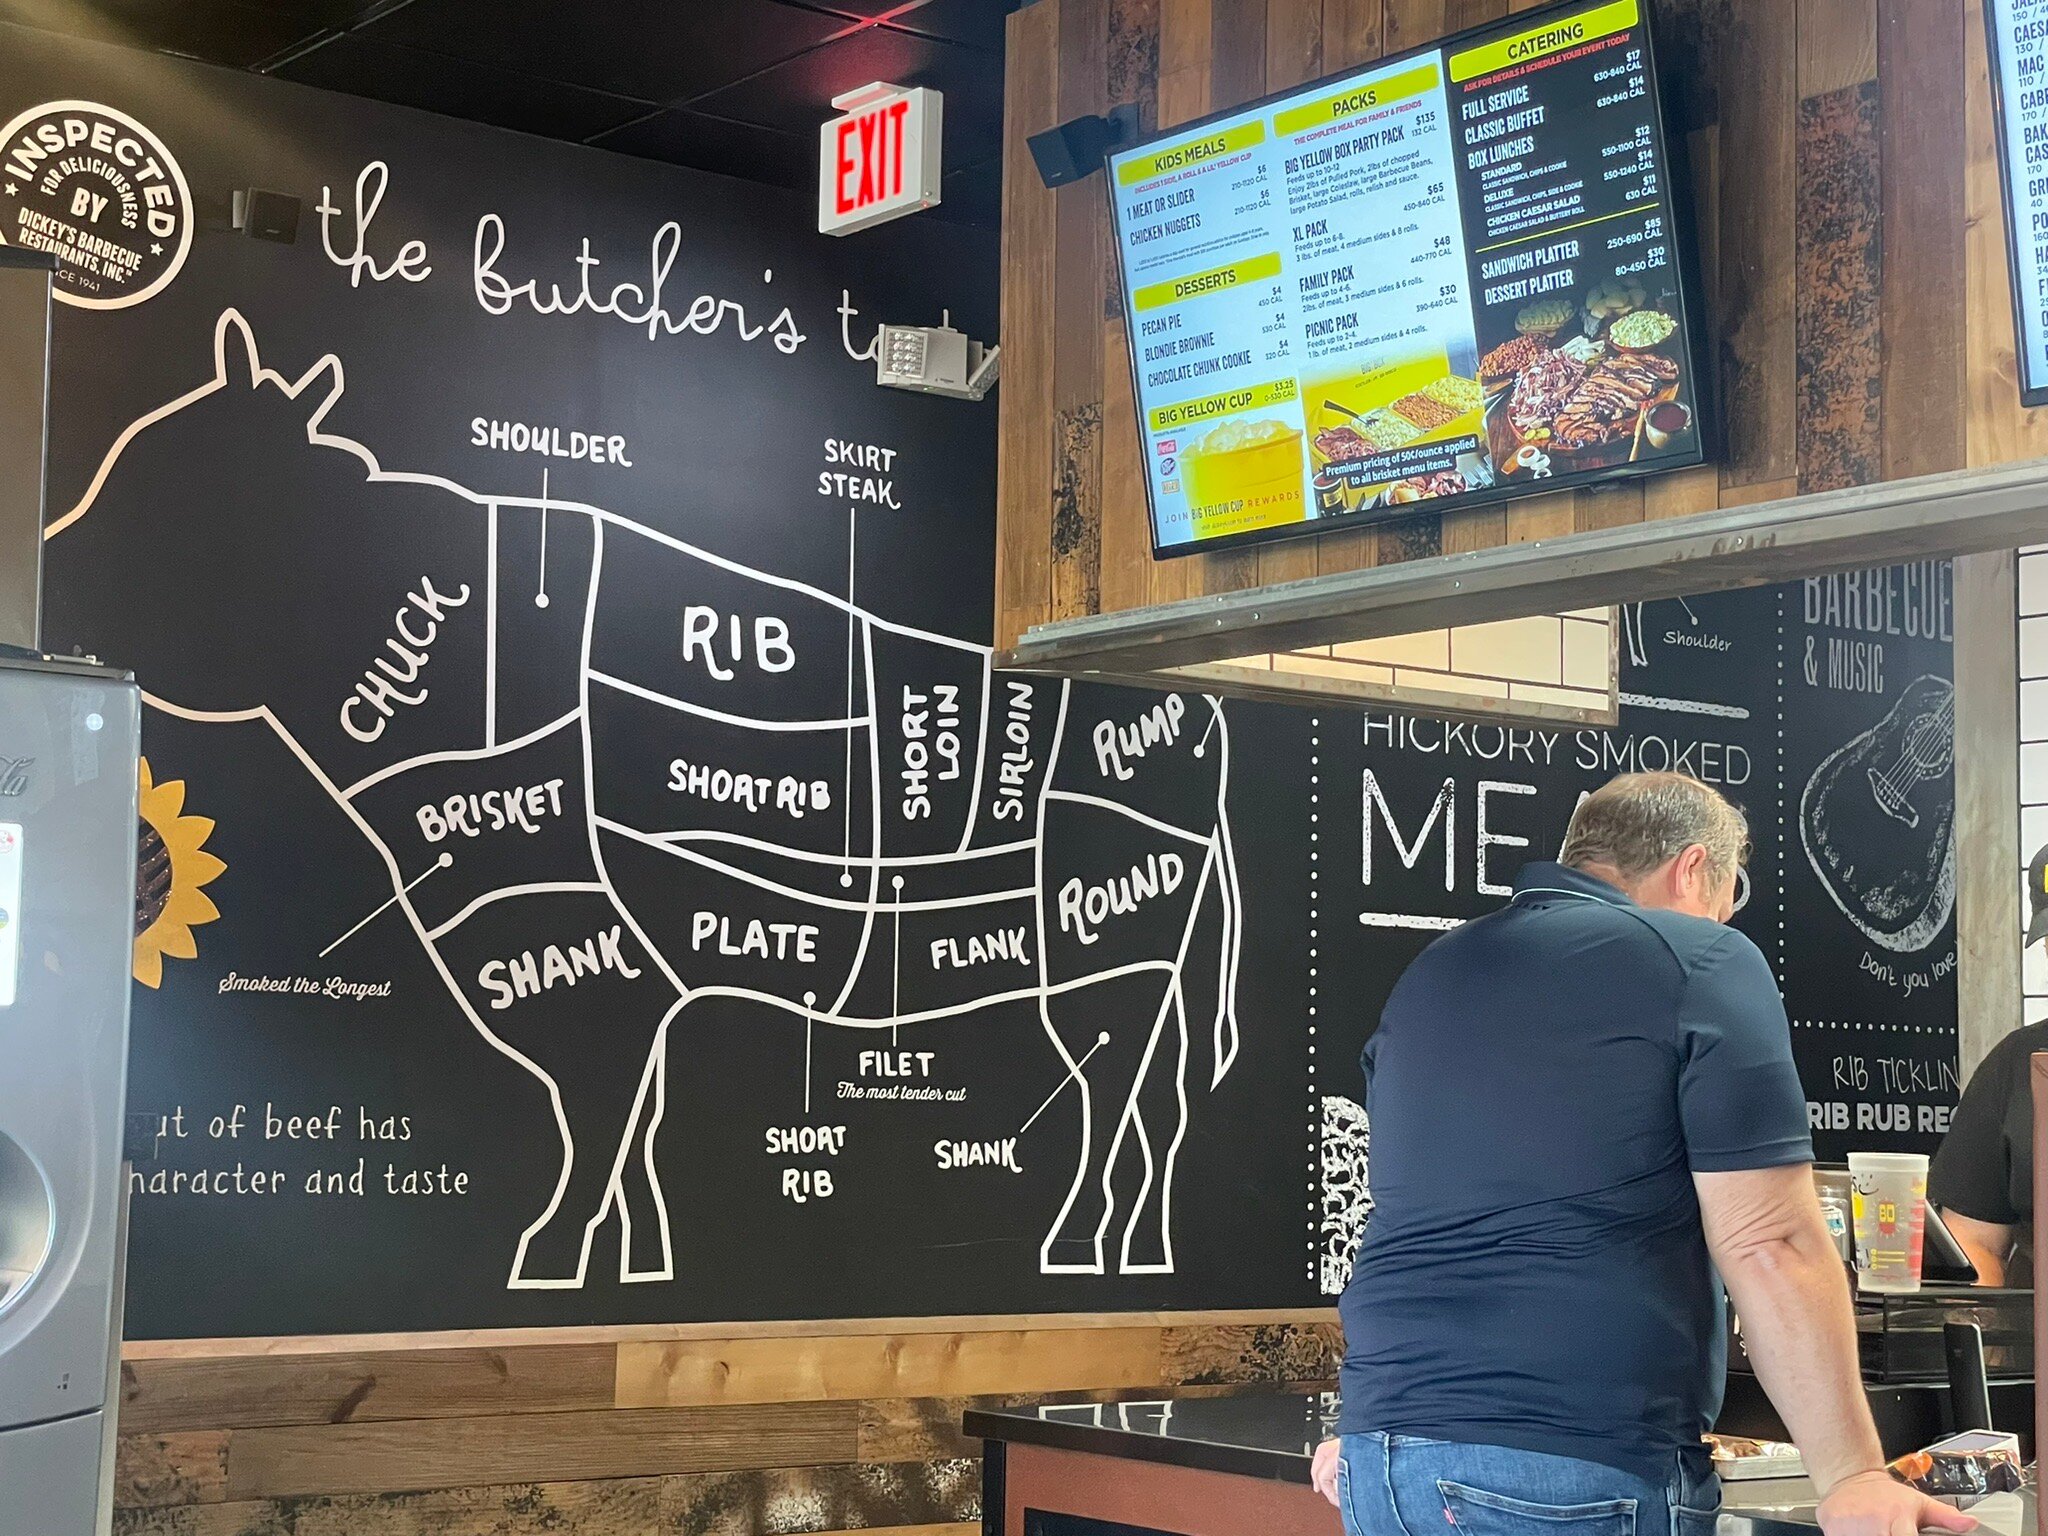 INSPECTED
FOR DELICIOUSNESS
BY
DICKEY'S BARBECUE
RESTAURANTS, INC.
CE 1941
the butcher's t
EXIT
SHOULDER
SKIRT
STEAK
CHUCK
RIB
SHORT
LOIN
SIRLOIN
RUMP
SHORT RIB
BRISKET
Smoked the Longest
SHANK
PLATE
FLANK
ROUND
FILET
The most tender cut
SHORT
RIB
SHANK
ut of beef has
haracter and taste
KIDS MEALS
INCLUDES 1 SIDE, A ROLL & A LIL' YELLOW CUP
1 MEAT OR SLIDER $6
210-1120 CAL
CHICKEN NUGGETS $6
210-1120 CAL
DESSERTS
PECAN PIE $4
450 CAL
BLONDIE BROWNIE $4
530 CAL
CHOCOLATE CHUNK COOKIE $4
320 CAL
BIG YELLOW CUP $3.25
0-530 CAL
JOIN BIG YELLOW CUP REWARDS
PACKS
THE COMPLETE MEAL FOR FAMILY & FRIENDS
BIG YELLOW BOX PARTY PACK $135
132 CAL
Feeds up to 10-12
Enjoy 2lbs of Pulled Pork, 2lbs of chopped
Brisket, large Coleslaw, large Barbecue Beans,
large Potato Salad, rolls, relish and sauce.
XL PACK $65
450-840 CAL
Feeds up to 6-8.
3 lbs. of meat, 4 medium sides & 8 rolls.
FAMILY PACK $48
440-770 CAL
Feeds up to 4-6.
2lbs. of meat, 3 medium sides & 6 rolls.
PICNIC PACK $30
390-640 CAL
Feeds up to 2-4.
1 lb. of meat, 2 medium sides & 4 rolls.
Premium pricing of 50¢/ounce applied
to all brisket menu items.
CATERING
ASK FOR DETAILS & SCHEDULE YOUR EVENT TODAY
FULL SERVICE $17
630-840 CAL
CLASSIC BUFFET $14
630-840 CAL
BOX LUNCHES
STANDARD $12
CLASSIC SANDWICH, CHIPS & COOKIE 550-1100 CAL
DELUXE $14
CLASSIC SANDWICH, CHIPS, SIDE & COOKIE 550-1240 CAL
CHICKEN CAESAR SALAD $11
CHICKEN CAESAR SALAD & BUTTERY ROLL 630 CAL
SANDWICH PLATTER $85
250-690 CAL
DESSERT PLATTER $30
80-450 CAL
CAES
130 /
MAC
110 /
CAB
170 /
BAK
CAS
170
GR
40
PO
160
HA
Shoulder
BARBECUE
& MUSIC
HICKORY SMOKED
ME
Don't you love
RIB TICKLIN
RIB RUB RE